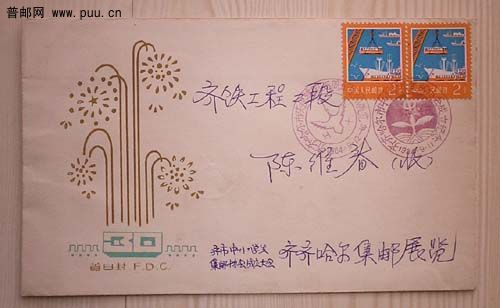 普邮网 www.puu.cn
中国人民邮政 2分
中国人民邮政 2分
齐铁工程三段
陈维春(收)
30
首日封 F.D.C.
齐市中小学生
集邮协会成立大会
齐齐哈尔集邮展览